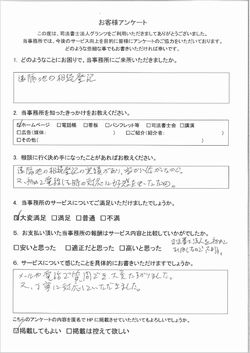 お客様アンケート
この度は、司法書士法人グランツをご利用いただきましてありがとうございました。
当事務所では、今後のサービス向上を目的に皆様にアンケートのご協力をいただいております。
どのような些細な事でもお書きいただければ幸いです。
1. どのようなことにお困りで、当事務所にご来所いただきましたか。
遠隔地の相続登記
2. 当事務所を知ったきっかけをお教えください。
☑ホームページ □電話帳 □看板 □パンフレット等 □司法書士会 □講演
□広告(媒体: ) □ご紹介(紹介者: )
□その他( )
3. 相談に行く決め手になったことがあればお教えください。
遠隔地の相続登記の実績があり、
又、初めて電話した時の対応に好感をもったため。
4. 当事務所のサービスについてご満足いただけましたでしょうか。
☑大変満足 □満足 □普通 □不満
5. お支払い頂いた当事務所の報酬はサービス内容と比較していかがでしたか。
□安いと思った □適正だと思った □高いと思った
6. サービスについて感じたことを具体的にお書きいただけますでしょうか。
メールや電話で質問でき、大変たすかりました。
又、丁寧に対応していただきました。
こちらのアンケートの内容を匿名でHPに掲載させていただいてもよろしいでしょうか。
☑掲載してもよい □掲載は控えて欲しい